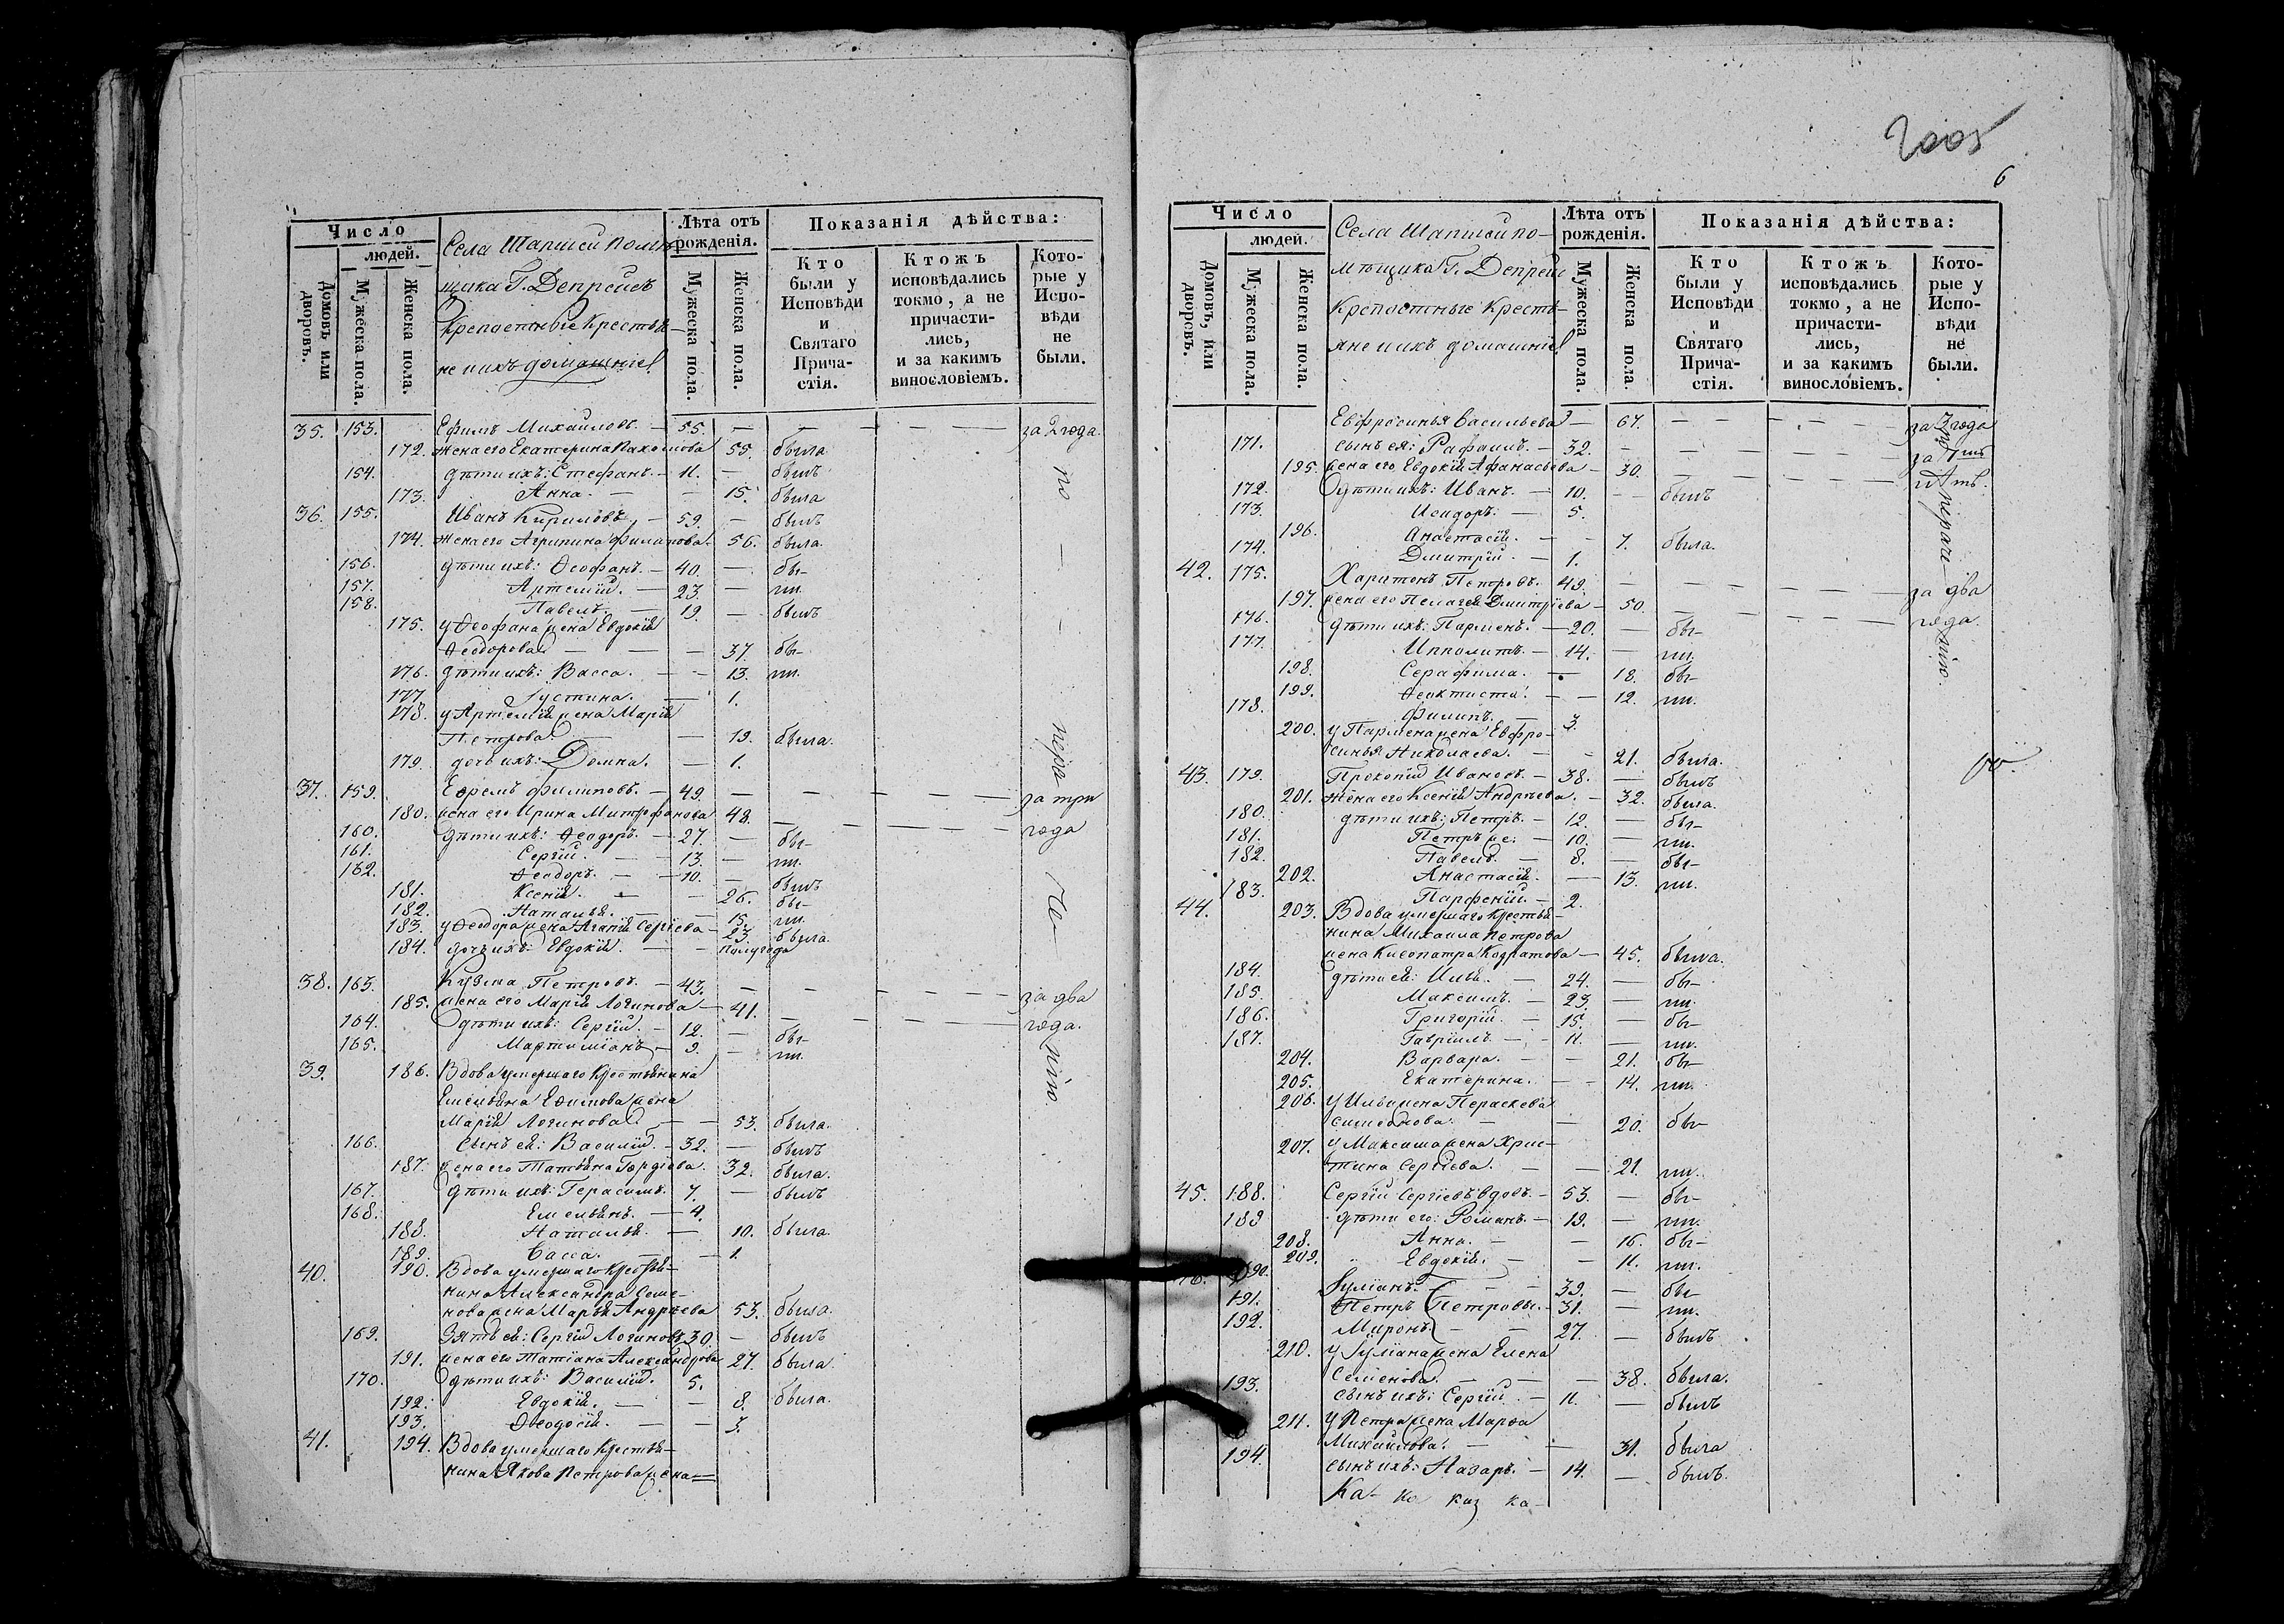 Число
людей.
Домовъ или дворовъ.
Мужеска пола.
Женска пола.
Села Шапш­ей помѣ-
щика Г. Депрейсъ
Крепостныѣ Крестья-
не и ихъ домашніе
Лѣта отъ рожденія.
Мужеска пола.
Женска пола.
Показанія дѣйства:
Кто были у Исповѣди и Святаго Прича-стія.
Ктожъ исповѣдались токмо, а не причасти-лись, и за какимъ винословіемъ.
Кото-рые у Испо-вѣди не были.
35. 153. Ефимъ Михайловъ. — 55. — — — — — за 2 года.
172. жена его Екатерина Пахомова 55. была
154. дѣти ихъ: Стефанъ. — 11. — былъ
173. Анна. — — 15. была
36. 155. Иванъ Кириловъ, — 59. — былъ
174. жена его Агрипина Филипова. 56. была.
156. дѣти ихъ: Ѳеофанъ. — 40. — бы-
157. Артемій. — 23. — ли.
158. Павелъ. — 19. — былъ
175. у Ѳеофана жена Евдокія
Ѳеодорова — — — 37. бы-
176. дѣти ихъ: Васса. — — 13. ли.
177. Густина. — 1.
178. у Артемія жена Марія
Петрова. — — 19. была.
179. дочь ихъ: Домна. — 1.
37. 159. Ефремъ Филиповъ. — 49. — — — — — за три
180. жена его Ирина Митрофанова 48. — — — — — года
160. дѣти ихъ: Ѳеодоръ. — 27. — бы-
161. Сергій. — — 13. — ли.
162. Ѳеодоръ. — — 10. — былъ
181. Ксенія. — — 26. бы-
182. Наталья. — — 15. ли.
183. у Ѳеодора жена Агапія Сергіева — 23. была.
184. дочь ихъ: Евдокія. — — полугода
38. 163. Кузма Петровъ. — 43. — — — — — за два
185. жена его Марія Логинова — 41. — — — — — года.
164. дѣти ихъ: Сергій. — 12. — бы-
165. Мартиміанъ — 9. — ли.
39. 186. Вдова умершаго Крестьянина
Емельяна Ефимова жена
Марія Логинова. — — 53. была.
166. Сынъ ея: Василій. — 32. — былъ
187. жена его Татьяна Гордіева. 32. была.
167. дѣти ихъ: Герасимъ. 7. — былъ
168. Емельянъ. — 4.
188. Наталья. — 10. была.
189. Васса. — — 1.
40. 190. Вдова умершаго Крестья-
нина Александра Семе-
нова жена Марья Андрѣева 53. была.
169. Зять ея: Сергій Логиновъ 30. — былъ
191. жена его Татіана Александрова 27. была.
170. дѣти ихъ: Василій. 5.
192. Евдокія. — — 8. была.
193. Ѳеодосія. — — 3.
41. 194. Вдова умершаго Крестья-
нина Якова Петрова жена
по
нера
че
нію
2005
6
Число
людей.
Домовъ, или дворовъ.
Мужеска пола.
Женска пола.
Села Шапшей по-
мѣщика Г. Депрейс
Крепостныѣ Кресть-
яне и ихъ домашніе
Лѣта отъ рожденія.
Мужеска пола.
Женска пола.
Показанія дѣйства:
Кто были у Исповѣди и Святаго Прича-стія.
Ктожъ исповѣдались токмо, а не причасти-лись, и за какимъ винословіемъ.
Кото-рые у Испо-вѣди не были.
Евфросинья Васильева — 67. — — — — — за 3 года
171. сынъ ея: Рафаилъ. — 32. — — — — — за
195. жена его Евдокія Афанасьева — 30. — — — — —
172. дѣти ихъ: Иванъ. — 10. — — былъ
173. Исидоръ. — 5.
196. Анастасія. — — 7. была.
174. Дмитрій. — 1.
42. 175. Харитонъ Петровъ. 49. — — — — — за два
197. жена его Пелагея Дмитріева — 50. — — — — — года.
176. дѣти ихъ: Парменъ. — 20. — бы-
177. Ипполитъ. — 14. — ли.
198. Серафима. — 18. бы-
199. Ѳеоктиста. — — 12. ли.
178. Филипъ. — 3.
200. у Пармена жена Евфро-
синья Николаева. — — 21. была.
43. 179. Прокопій Ивановъ. — 38. — былъ
201. жена его Ксенія Андрѣева. — 32. была.
180. дѣти ихъ: Петръ. — 12. — бы-
181. Петръ же. — 10. — ли.
182. Павелъ. — 8. — бы-
202. Анастасія. — 13. ли.
183. Парфеній. — 2.
44. 203. Вдова умершаго Крестья-
нина Михаила Петрова
жена Клеопатра Кодратова — 45. была.
184. дѣти ея: Илья. — 24. — бы-
185. Максимъ. — 23. — ли.
186. Григорій. — 15. — бы-
187. Гавріилъ. — 11. — ли.
204. Варвара. — — 21. бы-
205. Екатерина. — — 14. ли.
206. у Ильи жена Пераскева
Симеонова. — — 20. бы-
207. у Максима жена Хрис-
тина Сергіева. — — 21. ли.
45. 188. Сергій Сергіевъ вдовъ. — 53. — бы-
189 дѣти его: Романъ. — 19. — ли.
208. Анна. — — 16. бы-
209. Евдокія. — — 11. ли.
190. Іуліанъ. — — 39. — бы-
191. Петръ Петровы. — 31. — ли.
192. Миронъ. — — 27. — былъ
210. у Іуліана жена Елена
Семенова. — — — 38. была.
193. сынъ ихъ: Сергій. — 11. — былъ
211. у Петра жена Марѳа
Михайлова. — — 31. была
194. сынъ ихъ: Назаръ. — 14. — былъ.
по нераче нію.